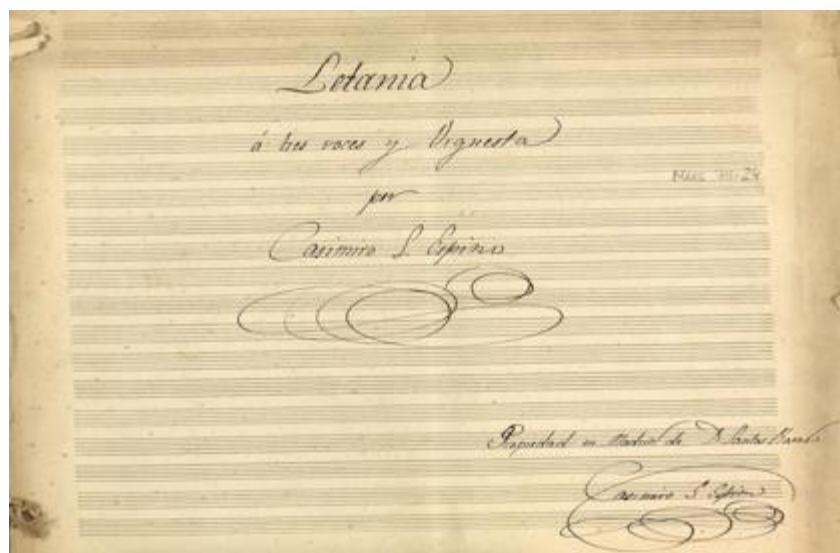 Letania
á tres voces y Orquesta
por
Casimiro L. Espino
Propiedad en Madrid de D. Santos
Casimiro L. Espino